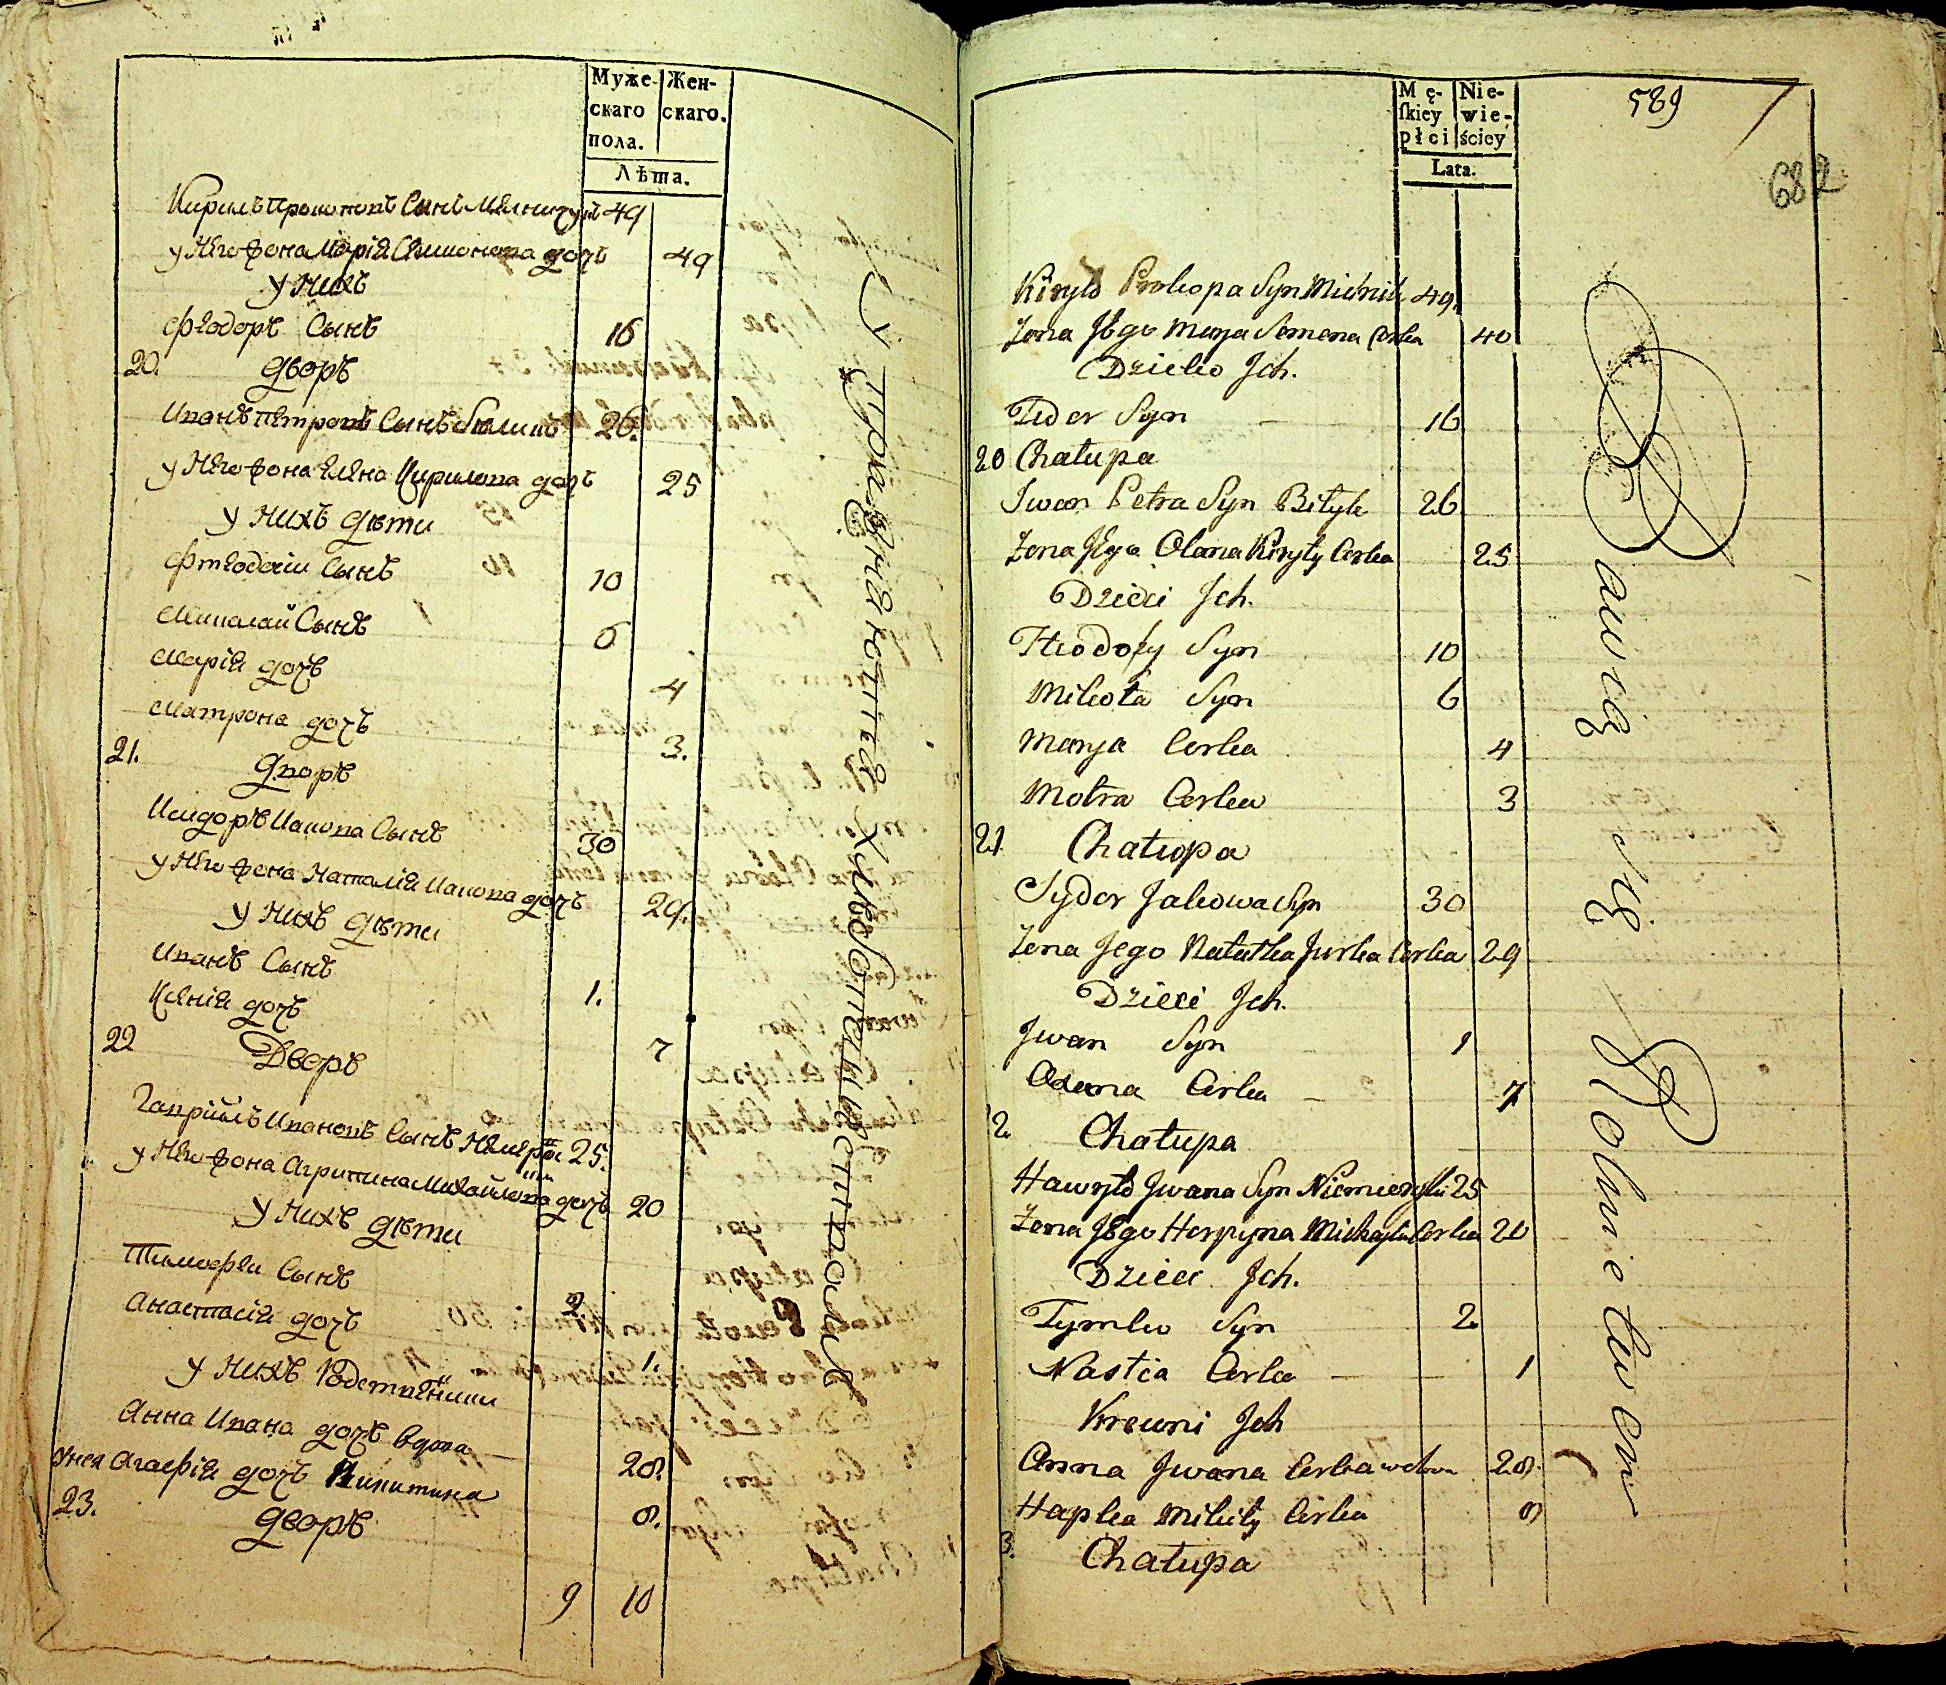 Муже-
скаго
пола.
Жен-
скаго.
Лѣта.
Кирилъ Прокоповъ Сынъ 49
у Него жона Марія Симонова дочъ 49
у Нихъ
Ѳѣодоръ Сынъ 16
20. дворъ
Иванъ Петровъ Сынъ Биликъ 26.
у Него жона Елена Кирилова дочъ 25
у Нихъ дѣти
Фтеодосій Сынъ 10
Николай Сынъ 6
Марія дочъ 4
Матрона дочъ 3.
21. дворъ
Исидоръ Иакова Сынъ 30
у Него жона Наталія Иакова дочъ 29.
у Нихъ дѣти
Иванъ Сынъ 1.
Ксѣнія дочъ 7
22 Дворъ
Гавріилъ Ивановъ Сынъ 25.
у Него жона Агрипина Михайлова дочъ 20
у Нихъ дѣти
Тимофѣи Сынъ 2.
Анастасія дочъ 1.
у Нихъ Родствѣнники
Анна Ивана дочъ вдова 28.
унея Агафія дочъ Никитина 8.
23. дворъ
9 10
Упражняются Хлебопашествомъ
Mę-
ſkiey
płci
Nie-
wie-
ściey
Lata.
589
682
Kiryło Prokopa Syn Mielnik 49.
Zona Jego Marya Semena Corka 40
Dziecko Jch.
Fedor Syn 16
20 Chałupa
Jwan Petra Syn Biłyk 26
Zona Jego Olana Kiryły Corka 25
Dzieci Jch.
Fteodosy Syn 10
Mikoła Syn 6
Marya Corka 4
Motra Corka 3
21 Chałupa
Sydor Jakowa Syn 30
Zona Jego Natałka Jurka Corka 29
Dzieci Jch.
Jwan Syn 1
Oxena Corka 7
2. Chałupa
Hawryło Jwana Syn Niemierski 25
Zona Jego Horpyna Michayła Corka 20
Dzieci Jch.
Tymko Syn 2
Nastia Corka 1
Krewni Jch
Anna Jwana Corka wdowa 28.
Hapka Mikity Corka 8
3. Chałupa
Bawią się Rolnictwem